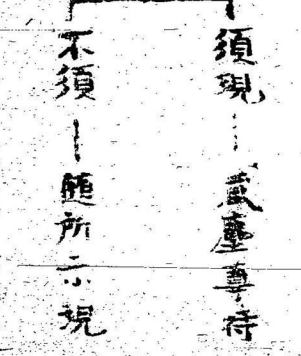 須現──蔵塵尊特
不須──随所示現